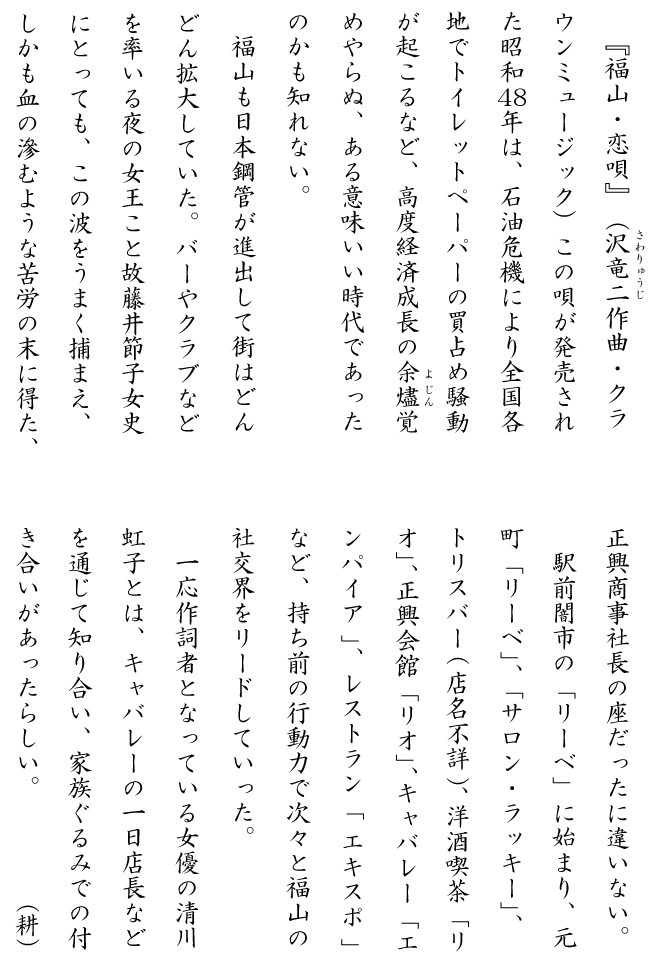 『福山・恋唄』（沢竜二作曲・クラ
ウンミュージック）この唄が発売され
た昭和48年は、石油危機により全国各
地でトイレットペーパーの買占め騒動
が起こるなど、高度経済成長の余燼覚
めやらぬ、ある意味いい時代であった
のかも知れない。
福山も日本鋼管が進出して街はどん
どん拡大していた。バーやクラブなど
を率いる夜の女王こと故藤井節子女史
にとっても、この波をうまく捕まえ、
しかも血の滲むような苦労の末に得た、
正興商事社長の座だったに違いない。
駅前闇市の「リーベ」に始まり、元
町「リーベ」、「サロン・ラッキー」、
トリスバー（店名不詳）、洋酒喫茶「リ
オ」、正興会館「リオ」、キャバレー「エ
ンパイア」、レストラン「エキスポ」
など、持ち前の行動力で次々と福山の
社交界をリードしていった。
一応作詞者となっている女優の清川
虹子とは、キャバレーの一日店長など
を通じて知り合い、家族ぐるみでの付
き合いがあったらしい。（耕）
さわりゅうじ
よじん